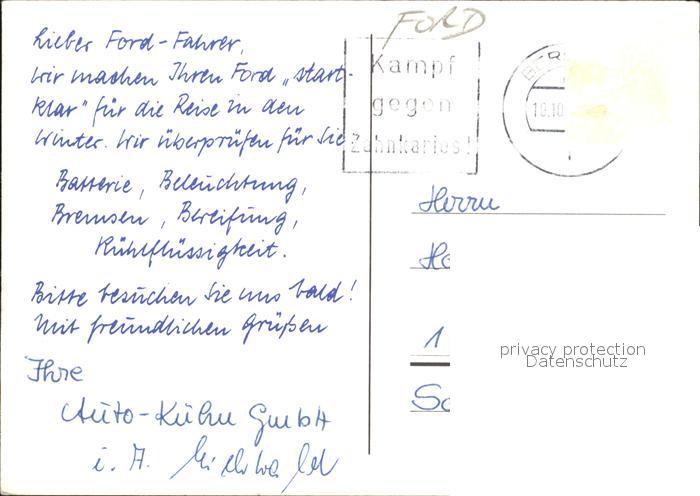 Lieber Ford-Fahrer,
wir machen Ihren Ford „start-
klar“ für die Reise in den
Winter. Wir überprüfen für Sie
Batterie, Beleuchtung,
Bremsen, Bereifung,
Kühlflüssigkeit.
Bitte besuchen Sie uns bald!
Mit freundlichen Grüßen
Ihre
Auto-Kühn GmbH
i. A.
FORD
Kampf
gegen
Zahnkaries!
BER
10.10
Herrn
He
1
Sc
privacy protection
Datenschutz